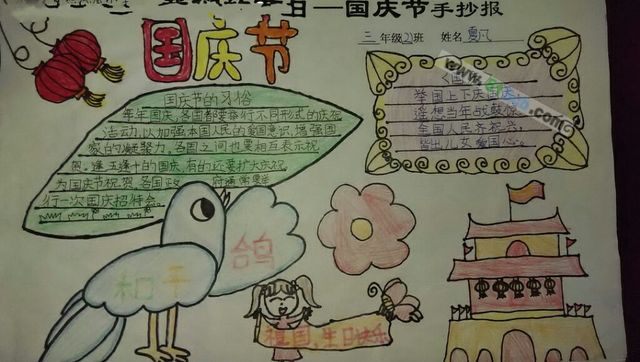 日—国庆节手抄报
三年级2班 姓名
国庆节
国庆节的习俗
每年国庆,各国都要举行不同形式的庆祝
活动,以加强本国人民的爱国意识,增强国
家的凝聚力,各国之间也要相互表示祝
贺,逢五逢十的国庆,有的还要扩大庆祝
为国庆节祝贺,各国政府通常要举
行一次国庆招待会。
举国上下庆国庆
遥想当年战鼓惊
全国人民齐祝兴
皆出儿女爱国心。
和平鸽
祖国,生日快乐